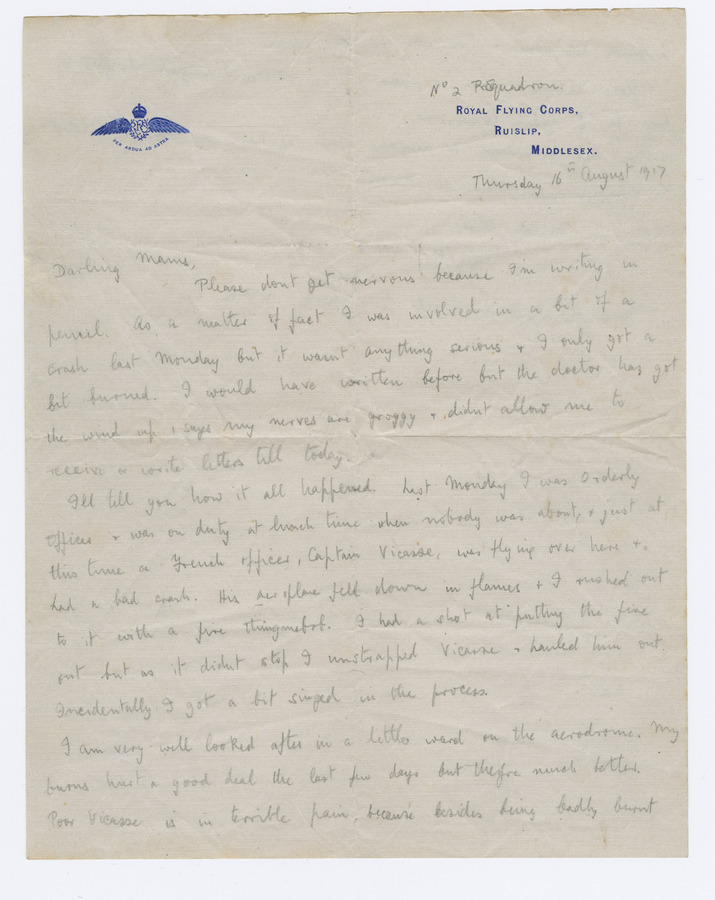 PER ARDUA AD ASTRA
RFC
No 2 R. Squadron.
ROYAL FLYING CORPS,
RUISLIP,
MIDDLESEX.
Thursday 16th August 1917
Darling Mams,
Please dont get nervous because I'm writing in
pencil. As a matter of fact I was involved in a bit of a
crash last Monday but it wasnt anything serious & I only got a
bit burned. I would have written before but the doctor has got
the wind up & says my nerves are groggy & didnt allow me to
receive or write letters till today.
I'll tell you how it all happened. Last Monday I was Orderly
Officer & was on duty at lunch time when nobody was about, & just at
this time a French officer, Captain Vicasse, was flying over here &
had a bad crash. His aeroplane fell down in flames & I rushed out
to it with a fire thingmebob. I had a shot at putting the fire
out but as it didnt stop I unstrapped Vicasse & hauled him out.
Incidentally I got a bit singed in the process.
I am very well looked after in a little ward on the aerodrome. My
burns hurt a good deal the last few days but they're much better.
Poor Vicasse is in terrible pain, because besides being badly burnt